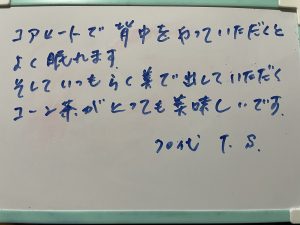 コアヒートで背中をやっていただくと
よく眠れます
そしていつもらく美で出していただく
コーン茶がとっても美味しいです。
70代 T. S.